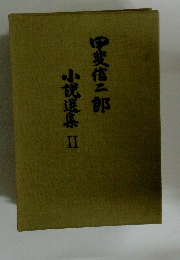 甲斐信二郎
小説選集 II